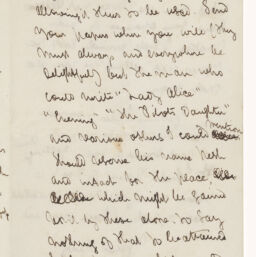 allowing them to be used. Send
your papers when you will (they
must always and everywhere be
delightful) but the man who
could write "Lady Alice"
"Evening" "The Pilot's Daughter"
and various others I could mention
should reserve his name fresh
and intact for the place
which might be gained
by these alone to say
nothing of that to be attained